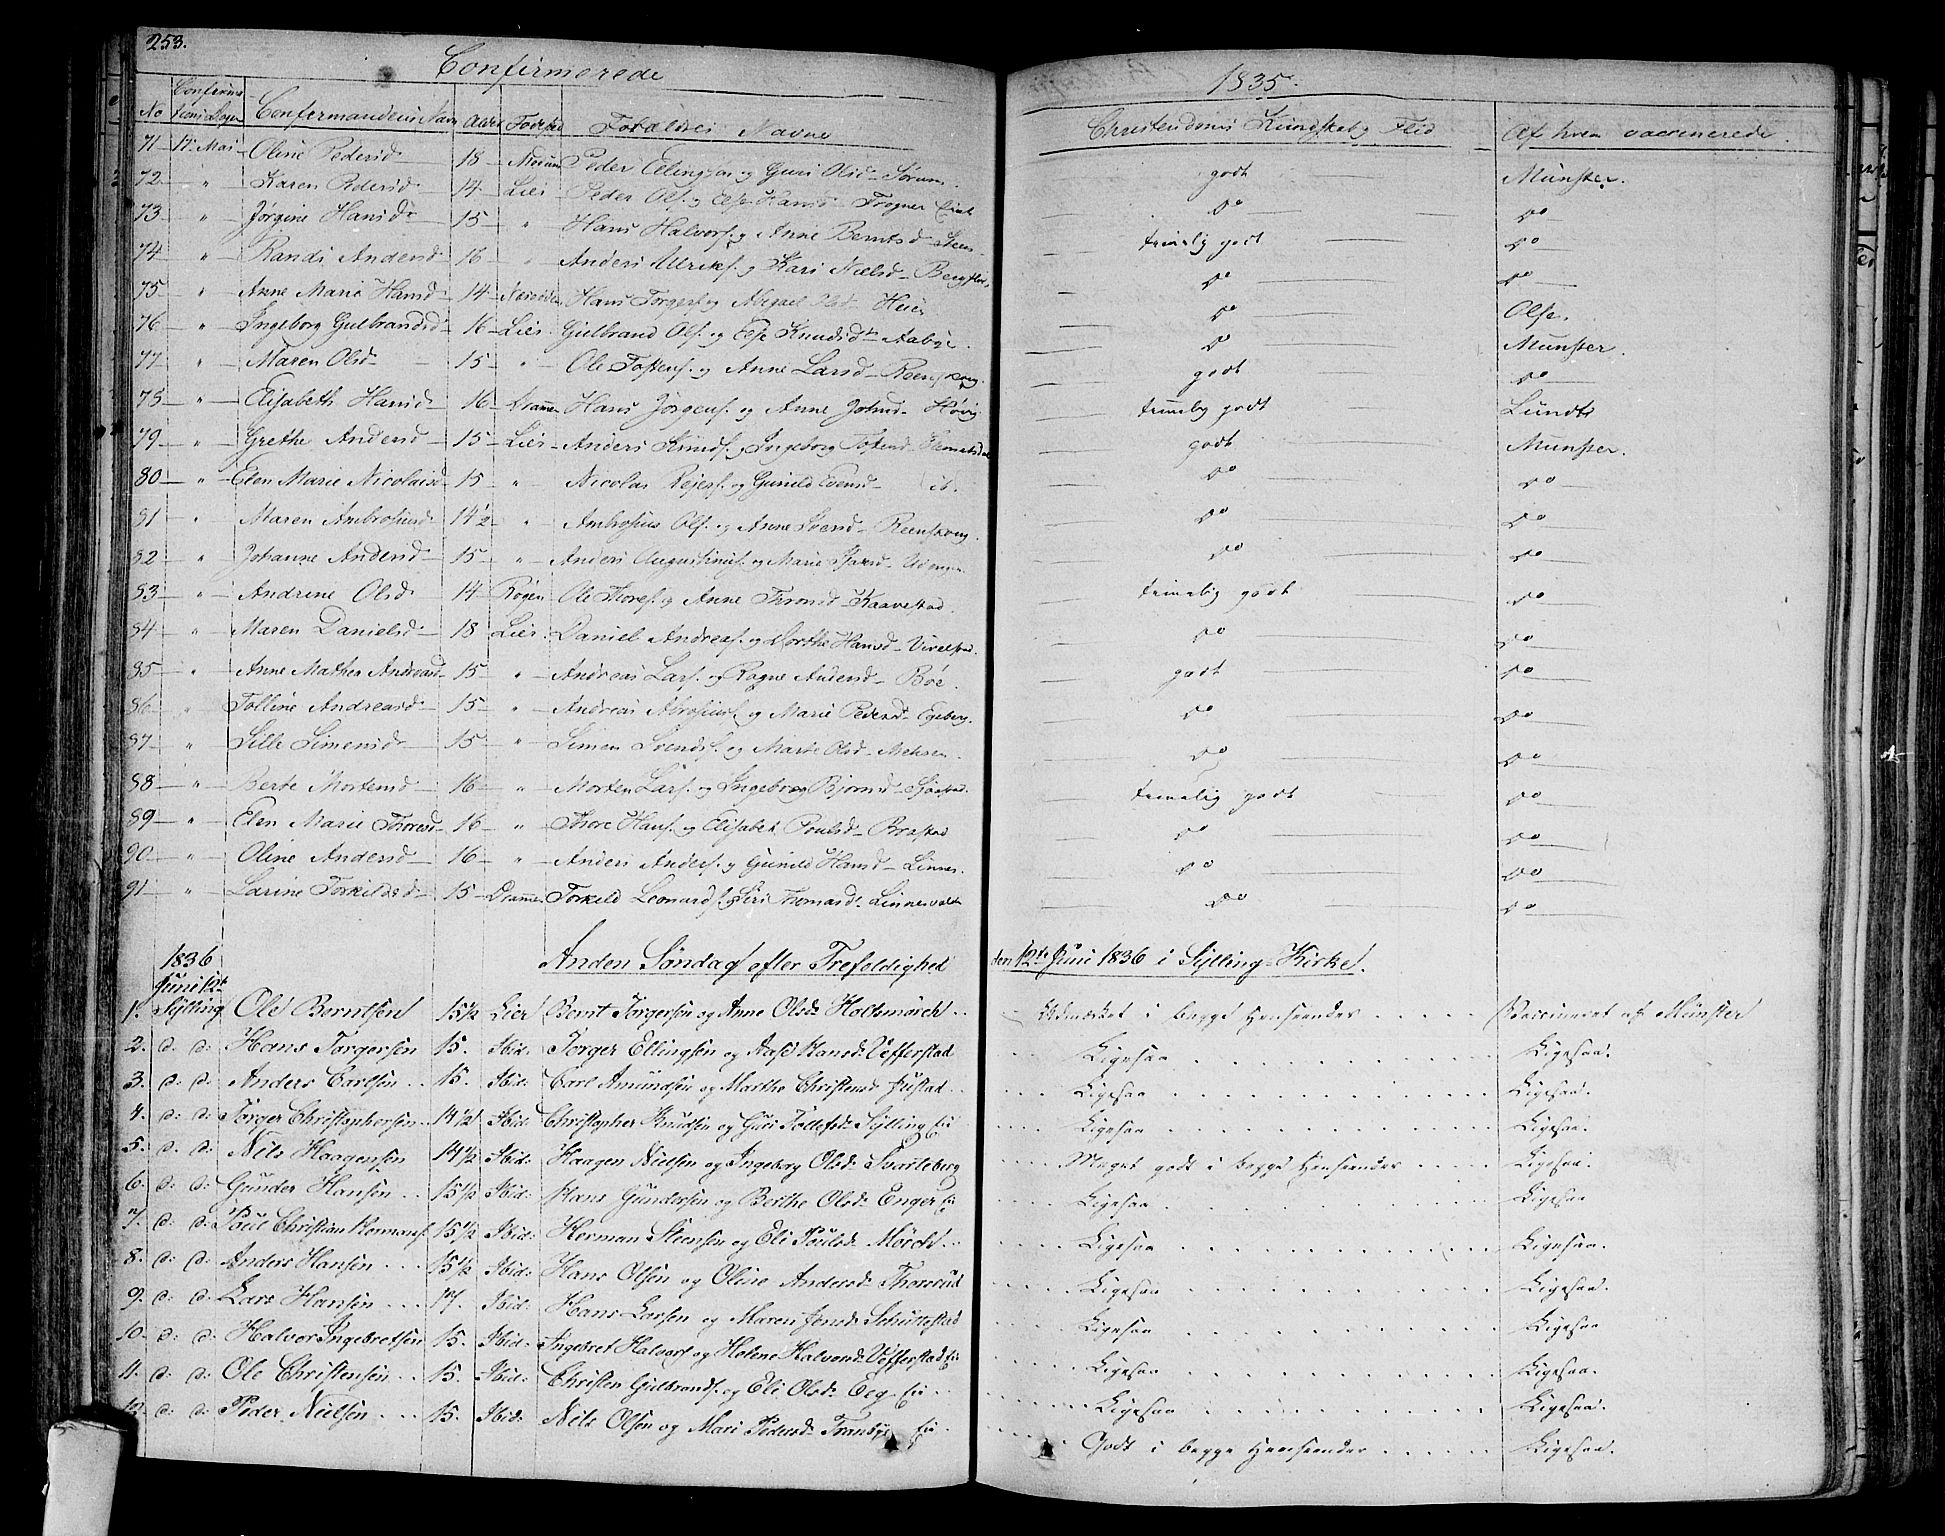 253.
Confirmerede 1835.
No Confirmations Dagen Confirmandens Navn Alder Fødested Forældres Navne Christendoms Kundskab og Flid Af hvem vaccinerede
71 17 Mai Oline Pedersd 18 Peder Ellingsen og Guri Olsd Sørum godt Münster.
72 " Karen Pedersd 14 Lier Peder Ols. og Else Hansd Frogner Eiet Do Do
73 " Jørgine Hansd 15 " Hans Halvors. og Anne Berntsd temelig godt Do
74 " Randi Andersd 16 " Anders Ulriks. og Kari Nielsd Do Do
75 " Anne Marie Hansd 14 Hans Torgers. og Abigael Olsd Do Olse.
76 " Ingeborg Gulbrandsd 16 Lier Gulbrand Ols. og Else Knudsd Aabye. Do Münster.
77 " Maren Olsd 15 " Ole Tostens. og Anne Larsd Reenskoug. godt Do
78 " Elisabeth Hansd 16 Dramen Hans Jørgens. og Anne Johnsd Høvig temelig godt Lundts
79 " Grethe Andersd 15 Lier Anders Knuds. Ingeborg Tostensd godt Münster.
80 " Elen Marie Nicolaisd 15 " Nicolai Rejers. og Gunild Evensd ib. Do Do
81 " Maren Ambrosiusd 14½ " Ambrosius Ols. og Anne Reenskoug. Do Do
82 " Johanne Andersd 15 " Anders Augustinus. og Marie Do Do
83 " Andrine Olsd 14 Røgen Ole Thores. og Anne Kaavestad. temelig godt Do
84 " Maren Danielsd 18 Lier Daniel Andreas. og Dorthe Hansd Vivelstad. Do Do
85 " Anne Mathea Andreasd 15 " Andreas Lars. og Ragne Andersd Bøe. godt Do
86 " Tolline Andreasd 15 " Andreas og Marie Pedersd Egeberg. Do Do
87 " Sille Simensd 15 " Simen Svends. og Marte Olsd Mehsen. Do Do
88 " Berte Mortensd 16 " Morten Lars. og Ingeborg Bjørnsd temelig godt Do
89 " Elen Marie Thoresd 16 " Thore Hans. og Elisabet Poulsd Brastad Do Do
90 " Oline Andersd 16 " Anders Anders. og Gunild Hansd Linnes. Do Do
91 " Larine Torkildsd 15 Dramen Torkeld Leonards. og Siri Thomasd. Do Do
1836 Juni 12te Anden Søndag efter Trefoldighed den 12te Juni 1836 i Sylling-Kirke.
1. Sylling Ole Berntsen 15½ Lier Bernt Torgersen og Anne Olsd: Holtsmørch Udmærket i begge Henseender Vaccineret af Münster
2. d: d: Hans Torgersen 15. Ibid: Torger Ellingsen og Aase Hansd: Vefferstad Ligesaa Ligesaa.
3. d: d: Anders Carlsen 15. Ibid: Carl Amundsen og Marthe Christensd Justad Ligesaa Ligesaa.
4. d: d: Torger Christophersen 14½ Ibid: Christopher Knudsen og Guri Tollefsd: Sylling Ei: Ligesaa Ligesaa.
5. d: d: Nils Haagensen 14½ Ibid: Haagen Nielsen og Ingeborg Olsd: Svarteberg Meget godt i begge Henseender Ligesaa
6. d: d: Gunder Hansen 15½ Ibid: Hans Gundersen og Berthe Olsd: Enger Ei Ligesaa Ligesaa
7. d: d: Poul Christian Hermans. 15½ Ibid: Herman Steensen og Eli Poulsd: Mørch Ligesaa Ligesaa.
8. d: d: Anders Hansen 15½ Ibid: Hans Olsen og Oline Andersd: Thorsrud Ligesaa Ligesaa.
9. d: d: Lars Hansen 17. Ibid: Hans Larsen og Maren Jensd: Schuttestad Ligesaa Ligesaa
10. d: d: Halvor Ingebretsen 15. Ibid: Ingebret Halvors. og Helene Halvorsd: Vefferstad Ei Ligesaa Ligesaa.
11. d: d: Ole Christensen 15. Ibid: Christen Gulbrands. og Eli Olsd: Eeg Ei Ligesaa Ligesaa.
12. d: d: Peder Nielsen 15. Ibid: Nils Olsen og Mari Pedersd: Tranbye Ei Godt i begge Henseender Ligesaa.